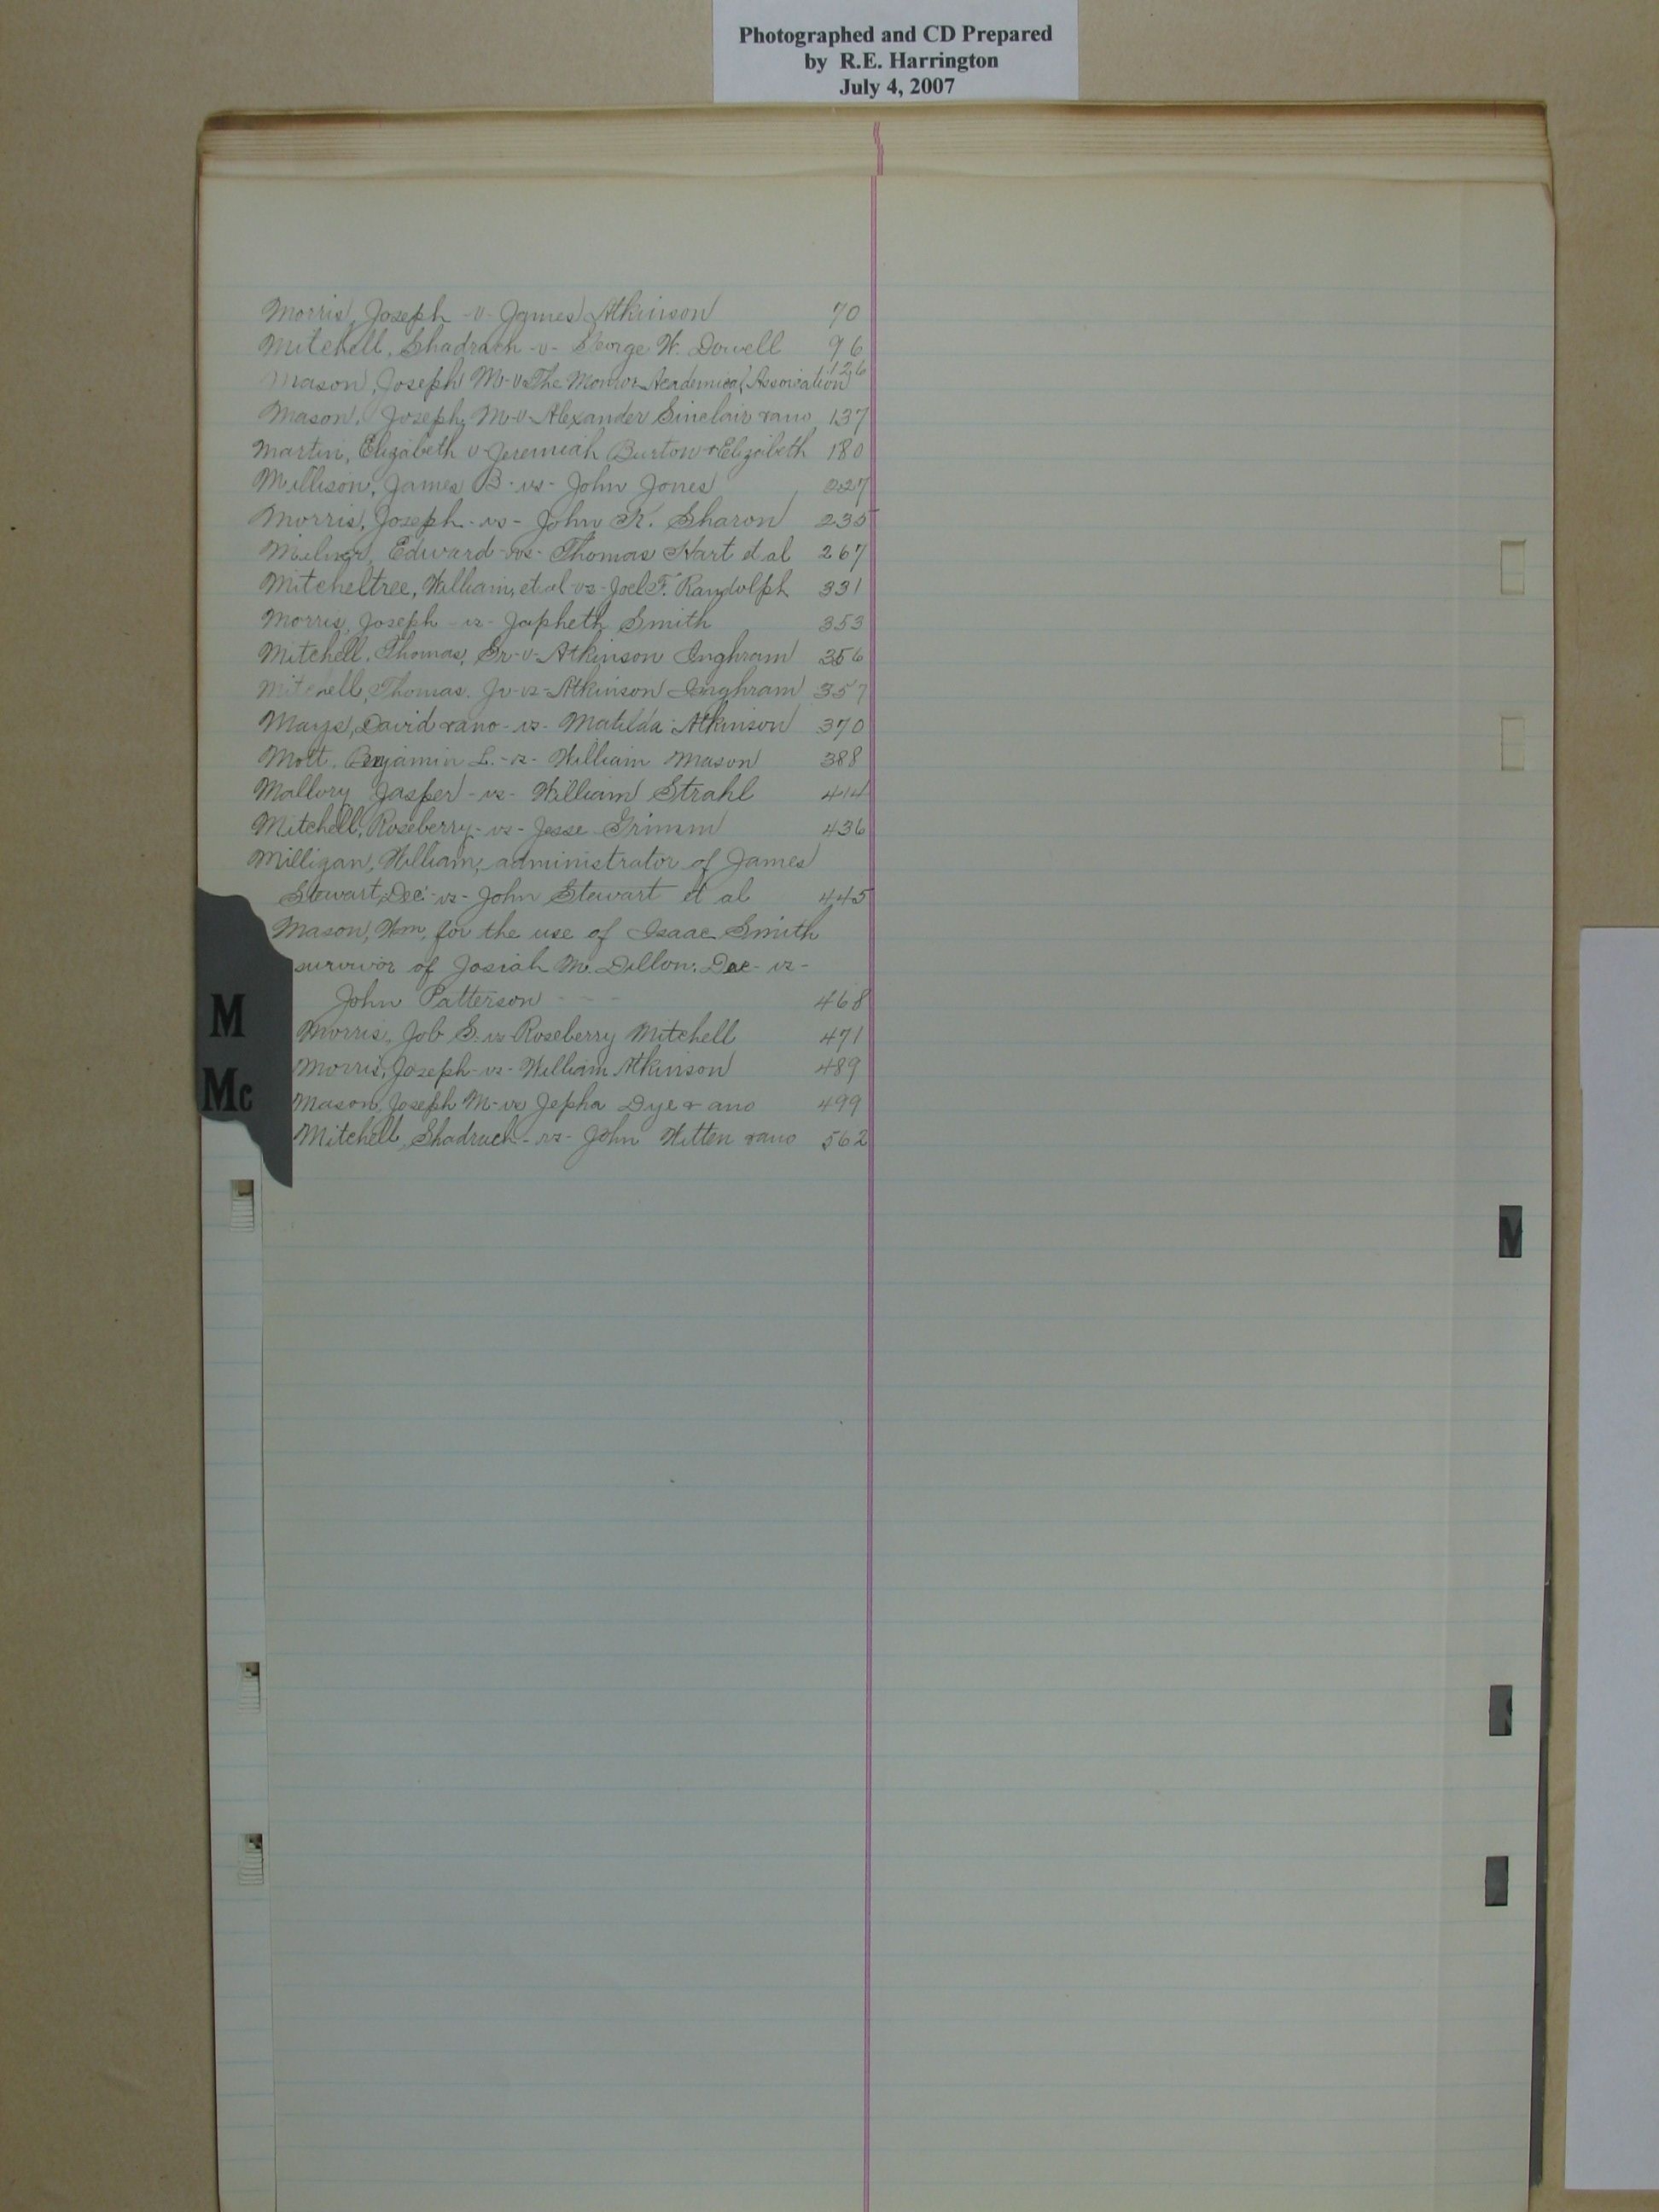 Photographed and CD Prepared
by R.E. Harrington
July 4, 2007
Morris, Joseph -v- James Atkinson 70
Mitchell, Shadrach -v- George W. Dowell 96
Mason, Joseph M -v- The Academical Association 126
Mason, Joseph M -v- Alexander Sinclair & ano 137
Martin, Elizabeth v Jeremiah Burton & Elizabeth 180
Millison, James B -vs- John Jones 227
Morris, Joseph -vs- John R. Sharon 235
Edward -vs- Thomas Hart et al 267
Mitcheltree, William, et al -vs- Joel F. Randolph 331
Morris, Joseph -vs- Japheth Smith 353
Mitchell, Thomas, Sr -v- Atkinson Inghram 356
Mitchell, Thomas, Jr -vs- Atkinson Inghram 357
Mays, David & ano -vs- Matilda Atkinson 370
Mott, Benjamin L. -vs- William Mason 388
Mallory Jasper -vs- William Strahl 414
Mitchell, Roseberry -vs- Jesse Grimm 436
Milligan, William, administrator of James
Stewart, Dec. -vs- John Stewart et al 445
Mason, Wm, for the use of Isaac Smith
survivor of Josiah M. Dillon, Dec -vs-
John Patterson - - - 468
M
Morris, Job S. vs Roseberry Mitchell 471
Morris, Joseph -vs- William Atkinson 489
Mc
Mason, Joseph M -vs Jepha Dye & ano 499
Mitchell, Shadrach -vs- John Witten & ano 562